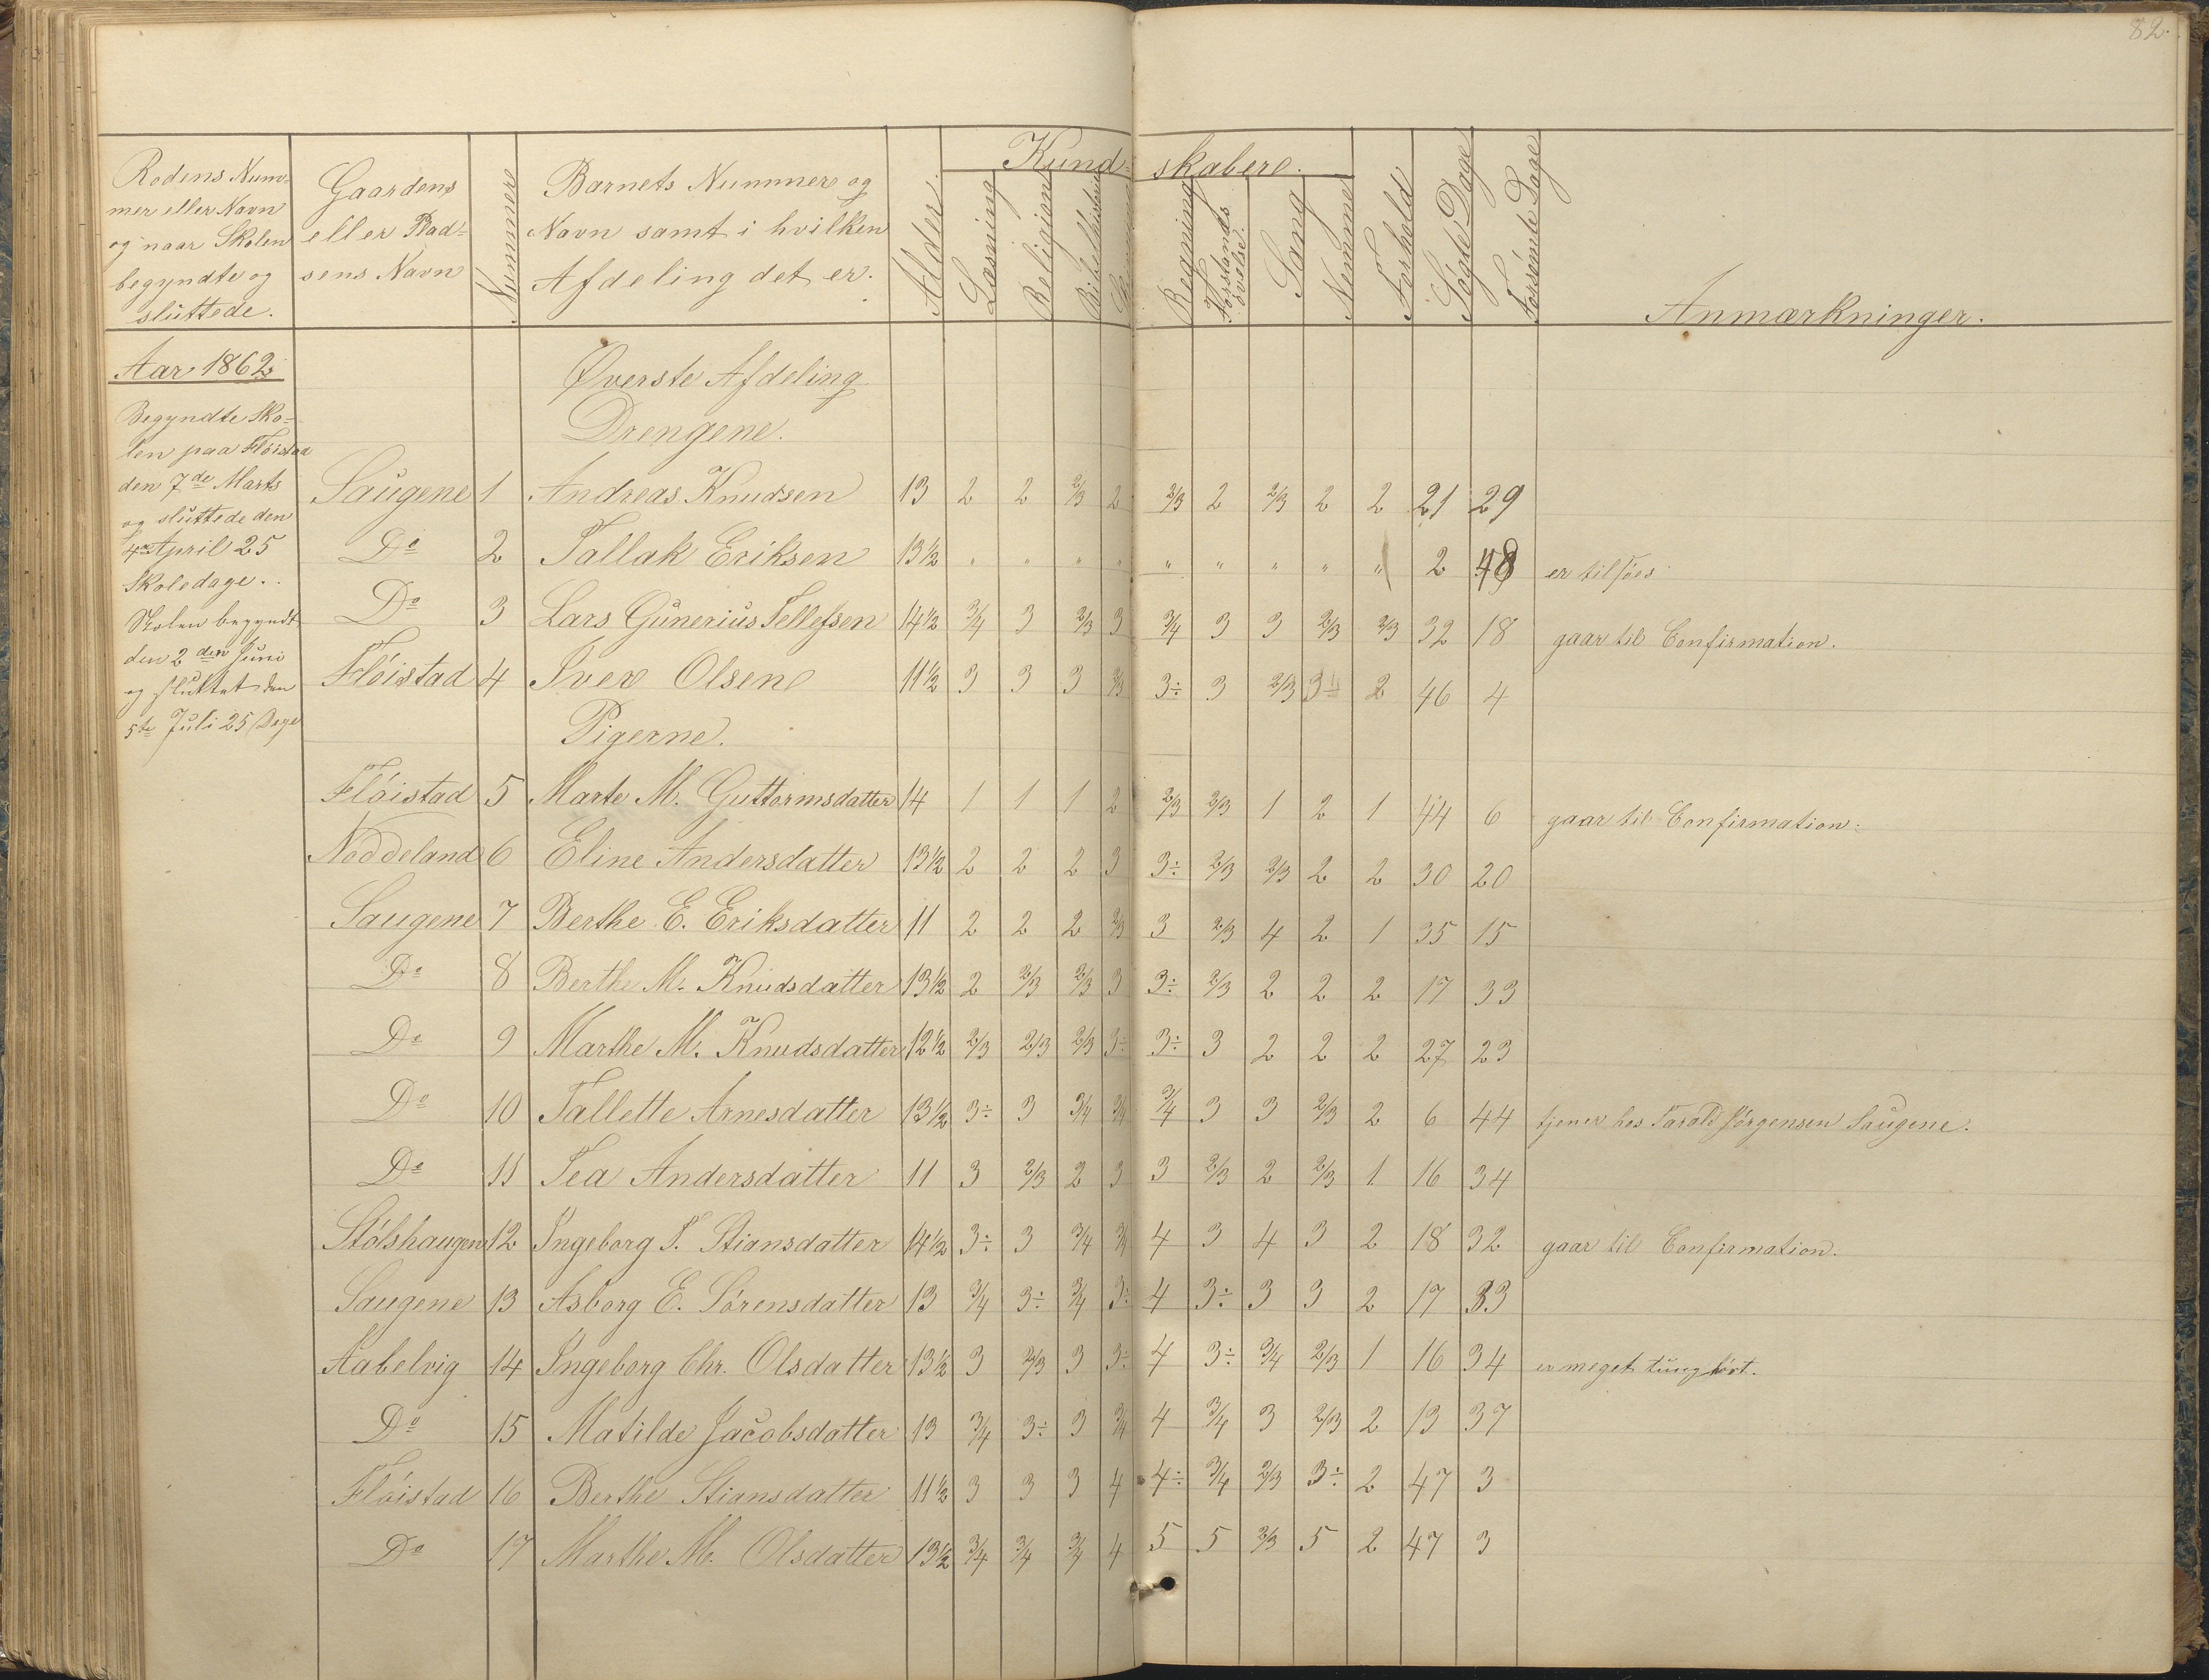 82.
Kund- skaber.
Rodens Num-
mer eller Navn
og naar Skolen
begyndte og
sluttede.
Gaardens
eller Plad-
sens Navn
Nummer
Barnets Nummer og
Navn samt i hvilken
Afdeling det er.
Alder.
Læsning
Religion
Bibelhistorie
Regning
Forstands
øvelse.
Sang
Nemme
Forhold
Søgte Dage
Forsømte Dage
Anmærkninger.
Aar 1862
Begyndte Sko-
len paa Flöistad
den 7de Marts
og sluttede den
4de April 25
Skoledage.
Skolen begyndt
den 2den Juni
og sluttet den
5te Juli 25 Dage
Øverste Afdeling
Drengene.
Saugene 1 Andreas Knudsen 13 2 2 2/3 2 2/3 2 2/3 2 2 21 29
Do 2 Tallak Eriksen 13½ " " " " " " " " " 2 48 er tilsöes
Do 3 Lars Gunerius Tellefsen 14½ 3/4 3 2/3 3 3/4 3 3 2/3 2/3 32 18 gaar til Confirmation.
Flöistad 4 Iver Olsen 11½ 3 3 3 2/3 3÷ 3 2/3 3÷ 2 46 4
Pigerne.
Flöistad 5 Marte M. Guttormsdatter 14 1 1 1 2 2/3 2/3 1 2 1 44 6 gaar til Confirmation.
Noddeland 6 Eline Andersdatter 13½ 2 2 2 3 3÷ 2/3 2/3 2 2 30 20
Saugene 7 Berthe E. Eriksdatter 11 2 2 2 2/3 3 2/3 4 2 1 35 15
Do 8 Berthe M. Knudsdatter 13½ 2 2/3 2/3 3 3÷ 2/3 2 2 2 17 33
Do 9 Marthe M. Knudsdatter 12½ 2/3 2/3 2/3 3÷ 3÷ 3 2 2 2 27 23
Do 10 Tallette Arnesdatter 13½ 3÷ 3 3/4 3/4 3/4 3 3 2/3 2 6 44 tjener hos Tarald Jörgensen Saugene.
Do 11 Tea Andersdatter 11 3 2/3 2 3 3 2/3 2 2/3 1 16 34
Stölshaugen 12 Ingeborg T. Stiansdatter 14½ 3÷ 3 3/4 3/4 4 3 4 3 2 18 32 gaar til Confirmation.
Saugene 13 Asborg E. Sörensdatter 13 3/4 3÷ 3/4 3÷ 4 3÷ 3 3 2 17 33
Aabelvig 14 Ingeborg Chr. Olsdatter 13½ 3 2/3 3 3÷ 4 3÷ 3/4 2/3 1 16 34 er meget tunghört.
Do 15 Matilde Jacobsdatter 13 3/4 3÷ 3 3/4 4 3/4 3 2/3 2 13 37
Flöistad 16 Berthe Stiansdatter 11½ 3 3 3 4 4÷ 3/4 2/3 3÷ 2 47 3
Do 17 Marthe M. Olsdatter 13½ 3/4 3/4 3/4 4 5 5 2/3 5 2 47 3